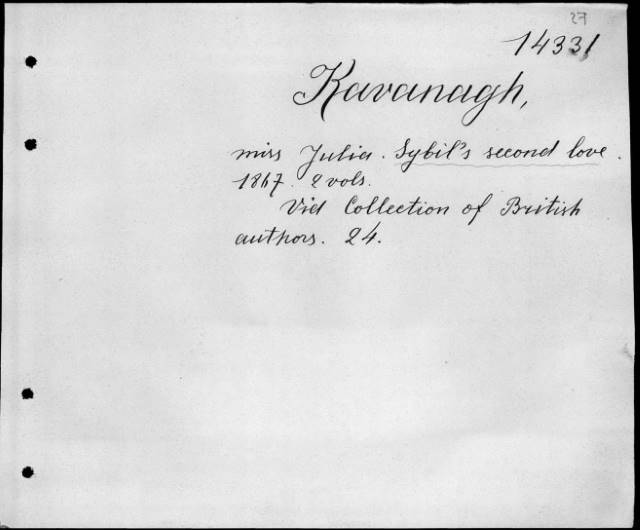 27
14331
Kavanagh,
miss Julia. Sybil's second love.
1867. 2 vols.
Vid Collection of British
authors. 24.